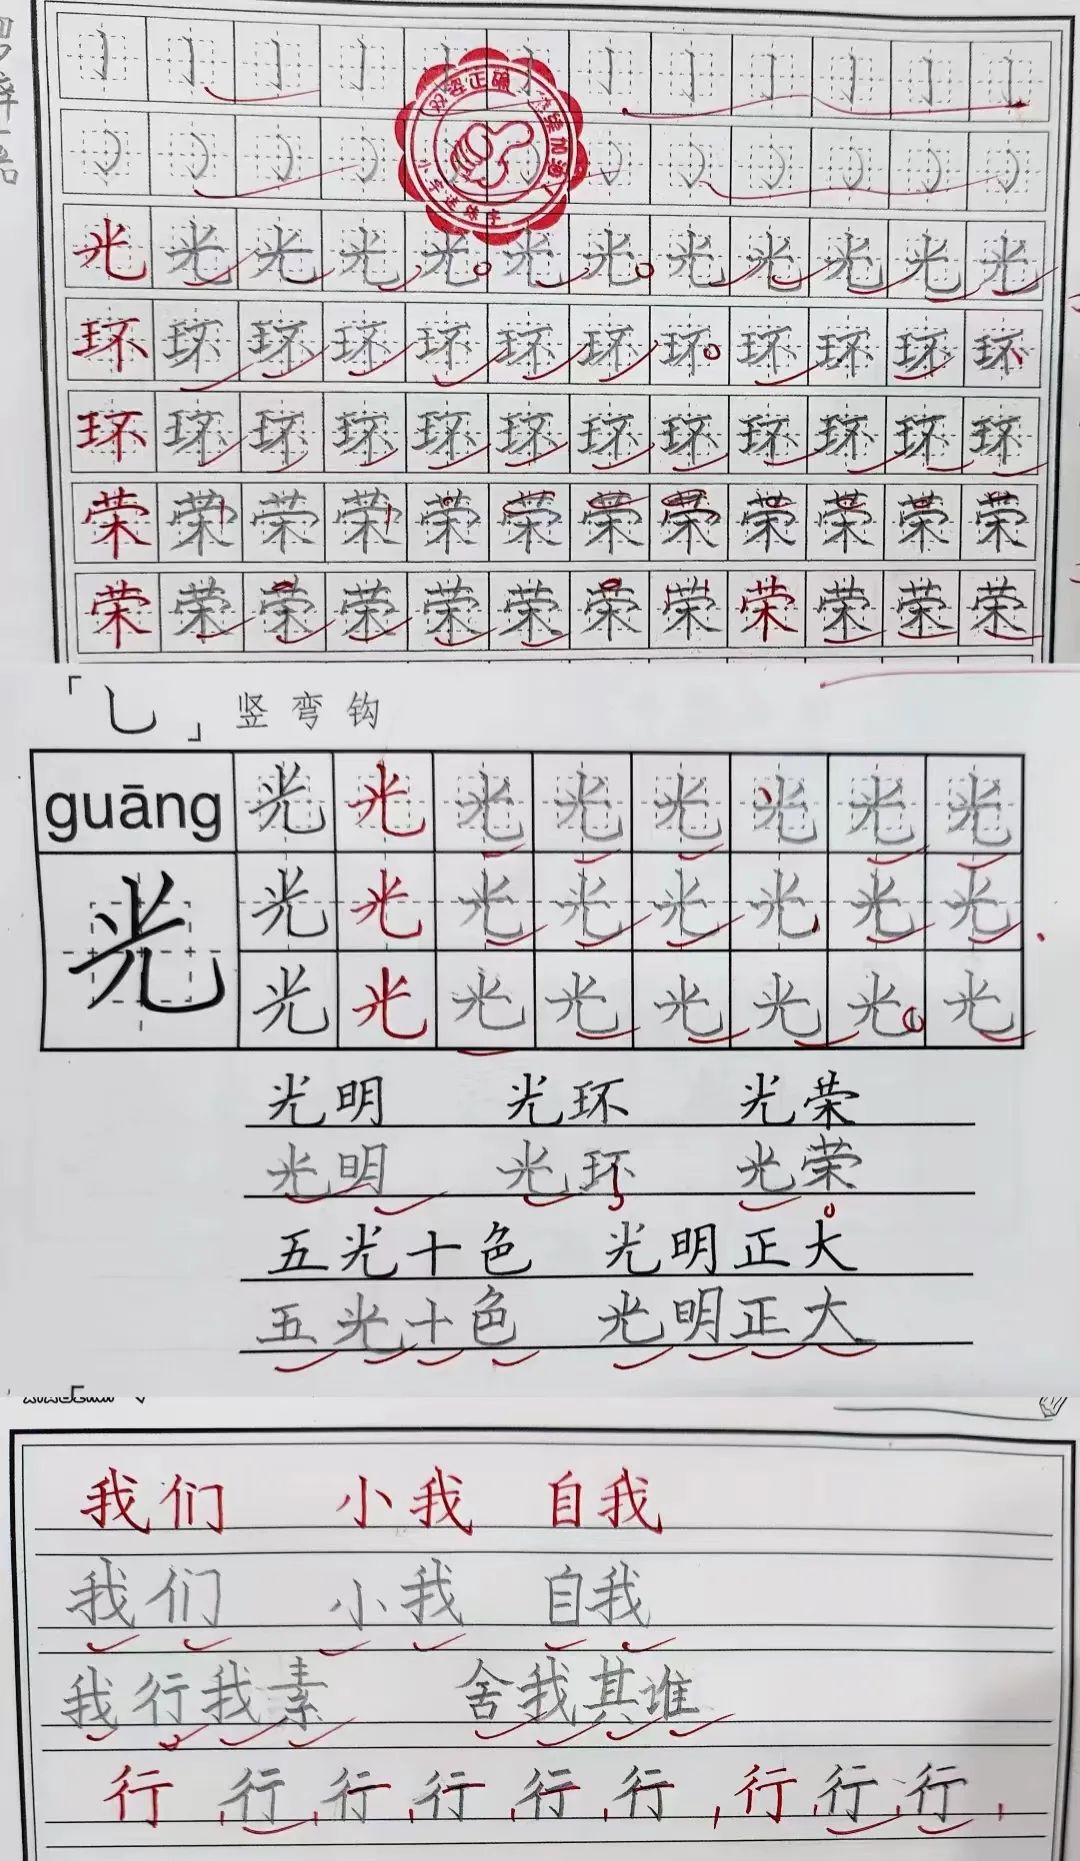 双姿正确 继续加油
小字连练字
亅亅亅亅亅亅亅亅亅亅亅亅
光光光光光光光光光光光光
环环环环环环环环环环环环
环环环环环环环环环环环环
荣荣荣荣荣荣荣荣荣荣荣荣
荣荣荣荣荣荣荣荣荣荣荣荣
「乚」竖弯钩
guāng 光光光光光光光光
光 光光光光光光光光
光光光光光光光光
光明 光环 光荣
光明 光环 光荣
五光十色 光明正大
五光十色 光明正大
我们 小我 自我
我们 小我 自我
我行我素 舍我其谁
行 行 行 行 行 行 行 行 行